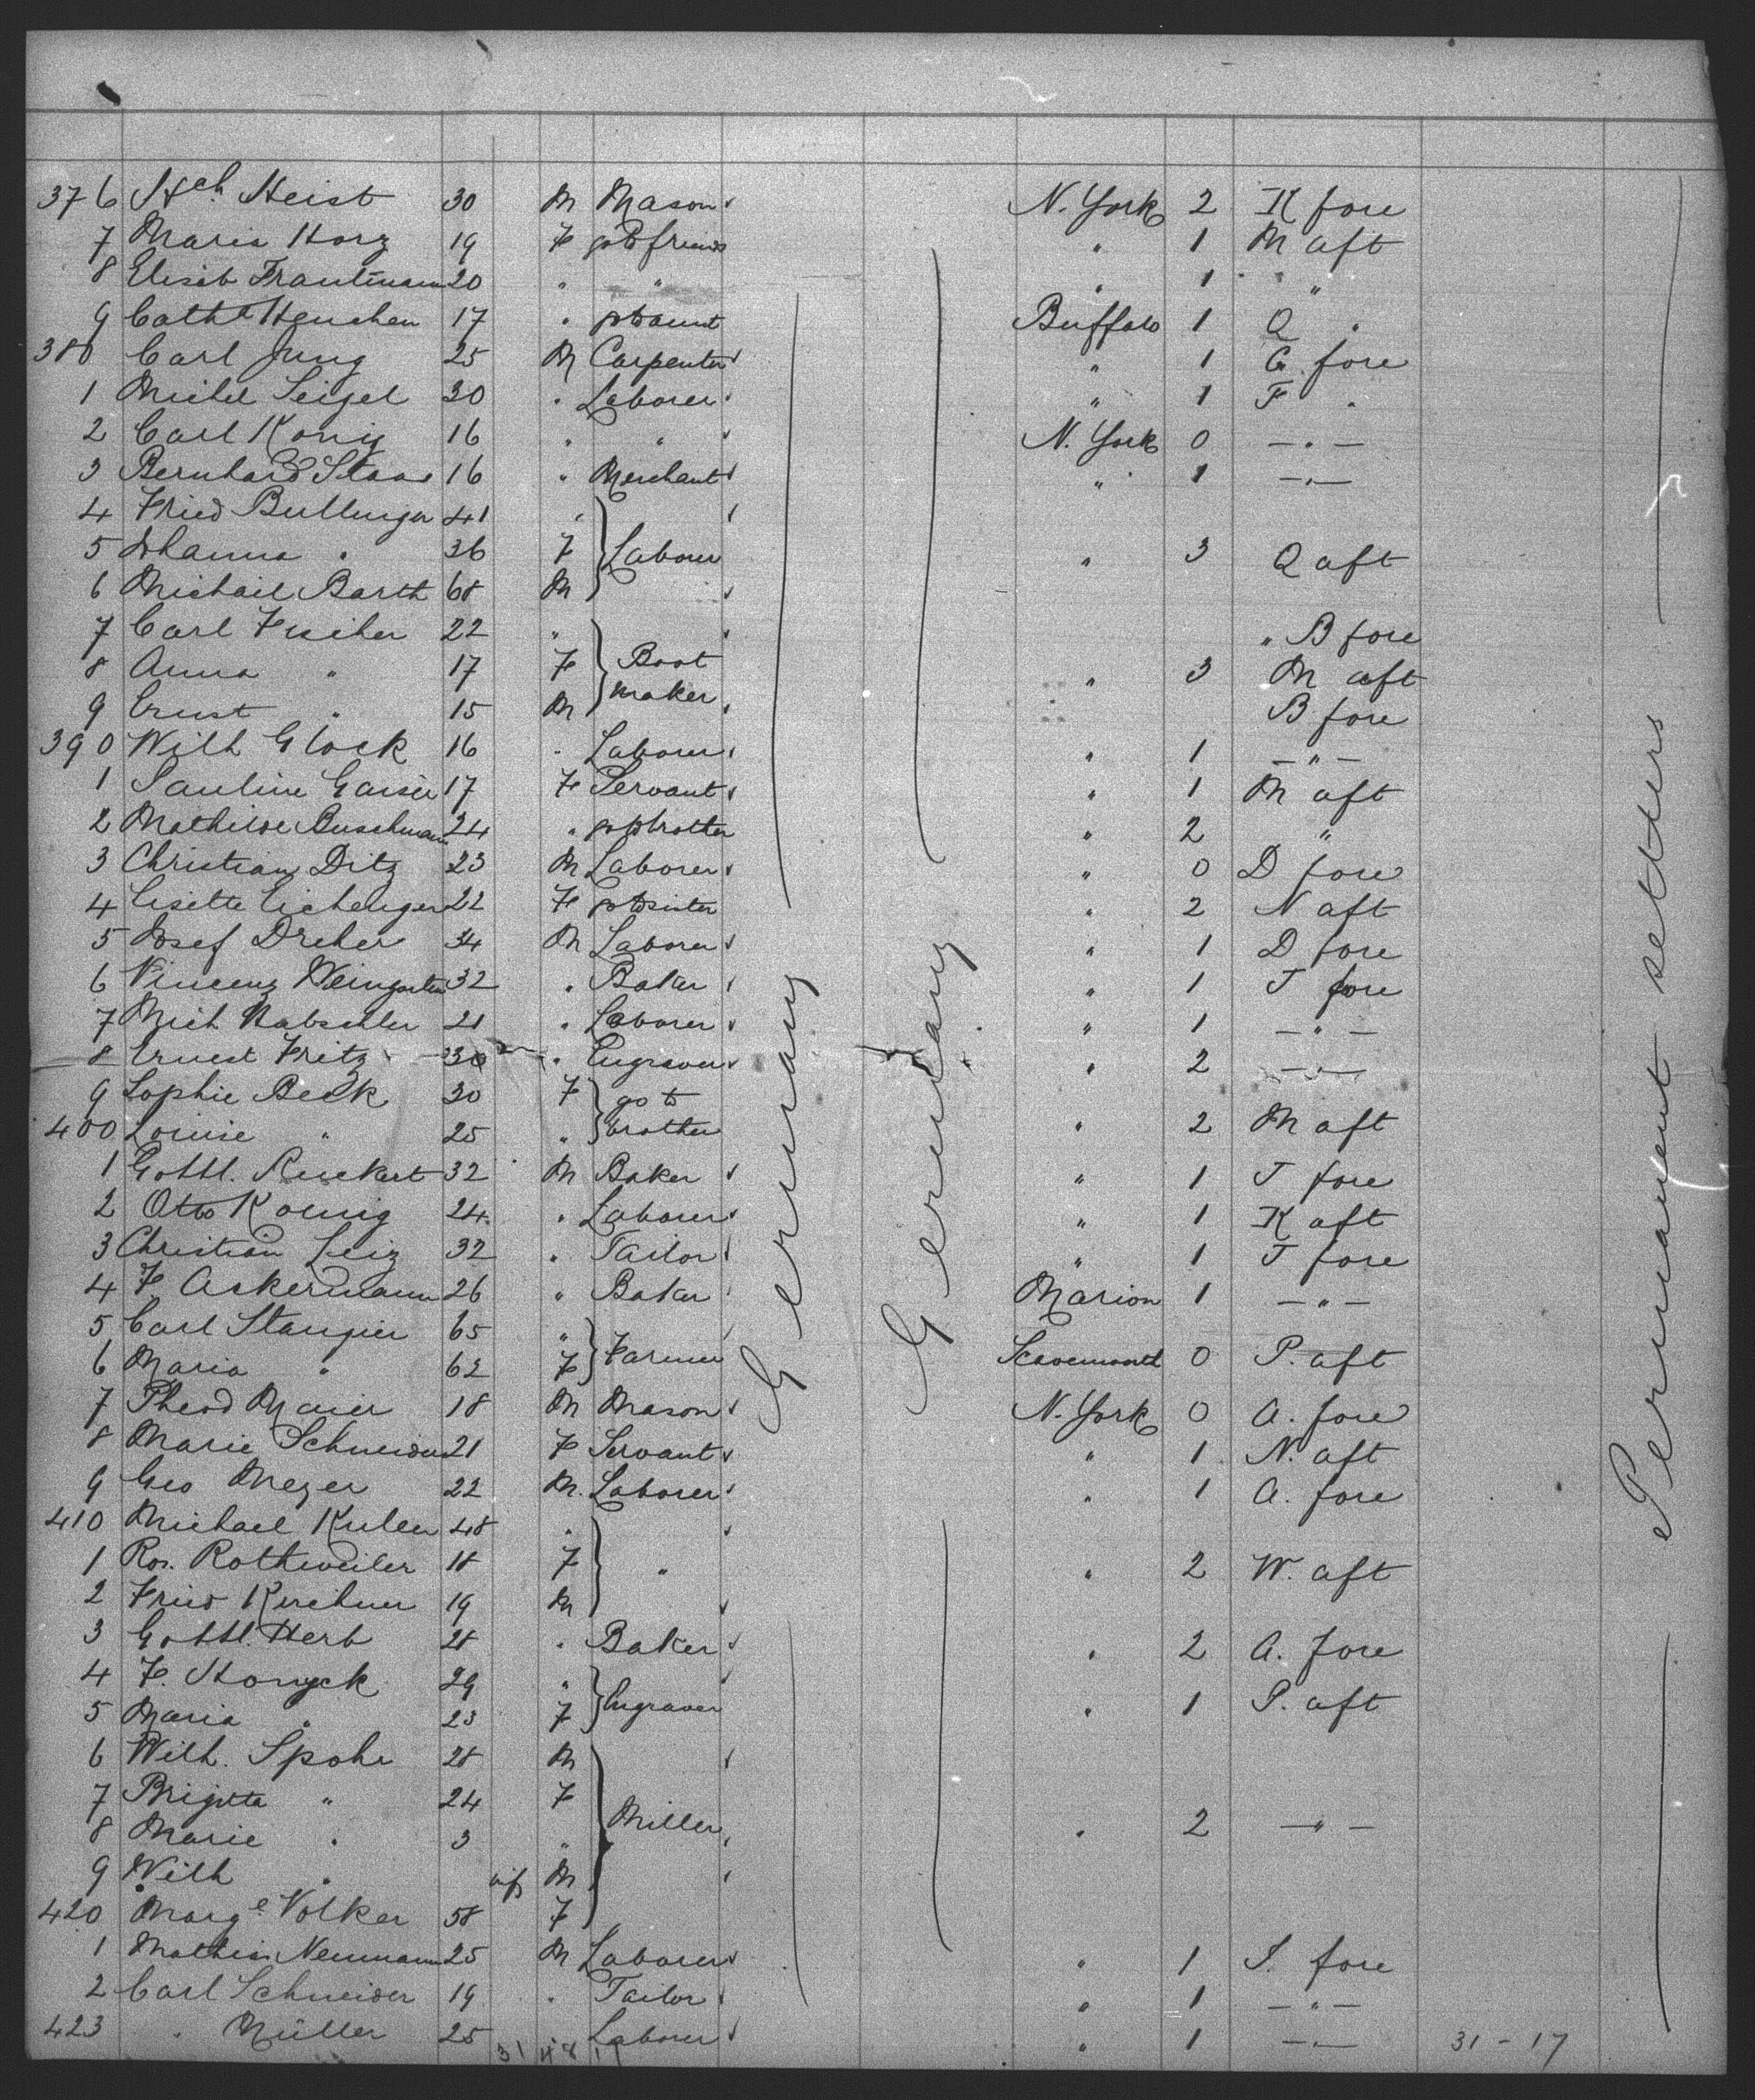 376 Hch Heist 30 M Mason N. York 2 K fore
7 Maria Horz 19 F go to friends " 1 M aft
8 Elisab Trautmann 20 " " " 1 " "
9 Cath Henchen 17 " go to aunt Buffalo 1 Q "
380 Carl Jung 25 M Carpenter " 1 G fore
1 Michel Seigel 30 " Laborer " 1 F "
2 Carl König 16 " " N. York 0 — " —
3 Bernhard Staas 16 " Merchant " 1 — " —
4 Fried Bullinger 41 "
5 Johanna " 36 F Laborer " 3 Q aft
6 Michail Barth 68 M
7 Carl Fischer 22 " " B fore
8 Anna " 17 F Boot " 3 M aft
9 Ernst " 15 M maker B fore
390 Wilh Glock 16 " Laborer " 1 — " —
1 Pauline Gaiser 17 F Servant " 1 M aft
2 Mathilde Buschmann 24 " go to brother " 2 "
3 Christian Ditz 23 M Laborer " 0 D fore
4 Lisette Eichenger 22 F go to sister " 2 N aft
5 Josef Dreher 34 M Laborer " 1 D fore
6 Vincenz Weingarten 32 " Baker " 1 J fore
7 Mich 21 " Laborer " 1 — " —
8 Ernest Fritz 30 " Engraver " 2 — " —
9 Sophie Beck 30 F go to
400 Louise " 25 " brother " 2 M aft
1 Gottl. Ruckert 32 M Baker " 1 J fore
2 Otto Koenig 24 " Laborer " 1 K aft
3 Christian Leiz 32 " Tailor " 1 J fore
4 F. Ackermann 26 " Baker Marion 1 — " —
5 Carl Stangier 65 "
6 Maria " 62 F Farmer 0 P. aft
7 Theod Maier 18 M Mason N. York 0 A. fore
8 Marie Schneider 21 F Servant " 1 N. aft
9 Geo Mezer 22 M. Laborer " 1 A. fore
410 Michael Kuller 48 "
1 Ros. Rothweiler 18 F " " 2 W. aft
2 Fried Kirchner 19 M
3 Gottl. Herb 28 " Baker " 2 A. fore
4 F. 29 "
5 Maria " 23 F Engraver " 1 P. aft
6 Wilh. Spohr 28 M
7 Brigitta " 24 F
8 Marie " 3 " Miller " 2 — " —
9 Wilh " inf M
420 Marge Volker 58 F
1 Mathias Neumann 25 M Laborer " 1 S. fore
2 Carl Schneider 19 " Tailor " 1 — " —
423 " Müller 25 Laborer " 1 — " — 31 - 17
Germany
Germany
Permanent settlers